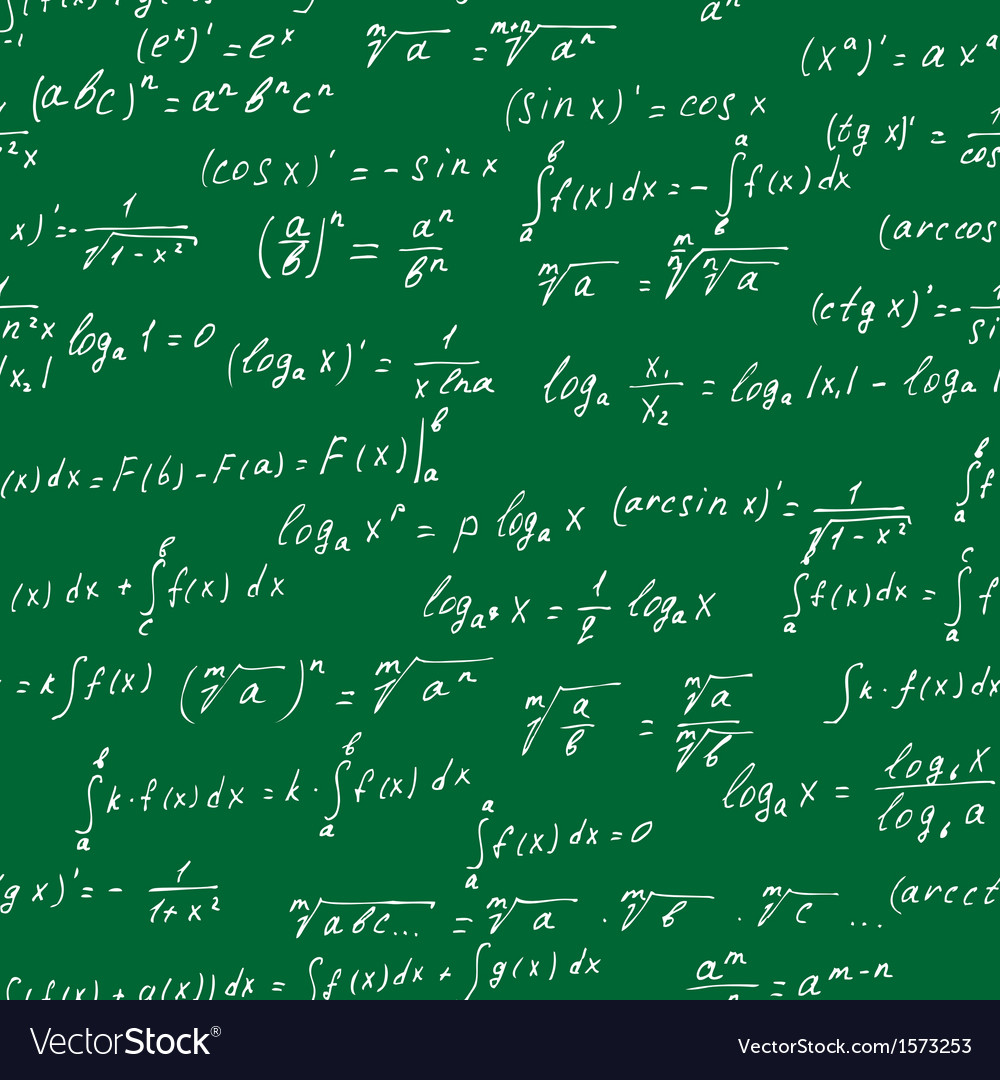 (eˣ)' = eˣ
ᵐ√a = ᵐ⁺ⁿ√aⁿ
aⁿ
(xᵃ)' = a xᵃ
(abc)ⁿ = aⁿ bⁿ cⁿ
(sin x)' = cos x
(tg x)' = 1/cos
(cos x)' = - sin x
∫ₐᵇ f(x) dx = - ∫ᵇₐ f(x) dx
x)' = - 1/√(1 - x²)
(a/b)ⁿ = aⁿ/bⁿ
(arccos
ᵐ√a = ᵐ/ⁿ√(ⁿ√a)
(ctg x)' = - 1/si
n²x
|x₂|
logₐ 1 = 0
(logₐ x)' = 1/(x ln a)
logₐ x₁/x₂ = logₐ |x₁| - logₐ |
(x) dx = F(b) - F(a) = F(x)|ₐᵇ
∫ₐᵇ f
logₐ xᵖ = p logₐ x
(arcsin x)' = 1/√(1 - x²)
(x) dx + ∫꜀ᵇ f(x) dx
x = 1/2 logₐ x
∫ₐᵇ f(x) dx = ∫ₐᶜ f
= k ∫ f(x)
(ᵐ√a)ⁿ = ᵐ√aⁿ
ᵐ√(a/b) = ᵐ√a/ᵐ√b
∫ k · f(x) dx
∫ₐᵇ k · f(x) dx = k · ∫ₐᵇ f(x) dx
logₐ x = log_b x/log_b a
∫ₐᵃ f(x) dx = 0
g x)' = - 1/(1 + x²)
ᵐ√abc... = ᵐ√a · ᵐ√b · ᵐ√c ...
(arcct
(f(x) + g(x)) dx = ∫ f(x) dx + ∫ g(x) dx
aᵐ/n = aᵐ⁻ⁿ
VectorStock®
VectorStock.com/1573253